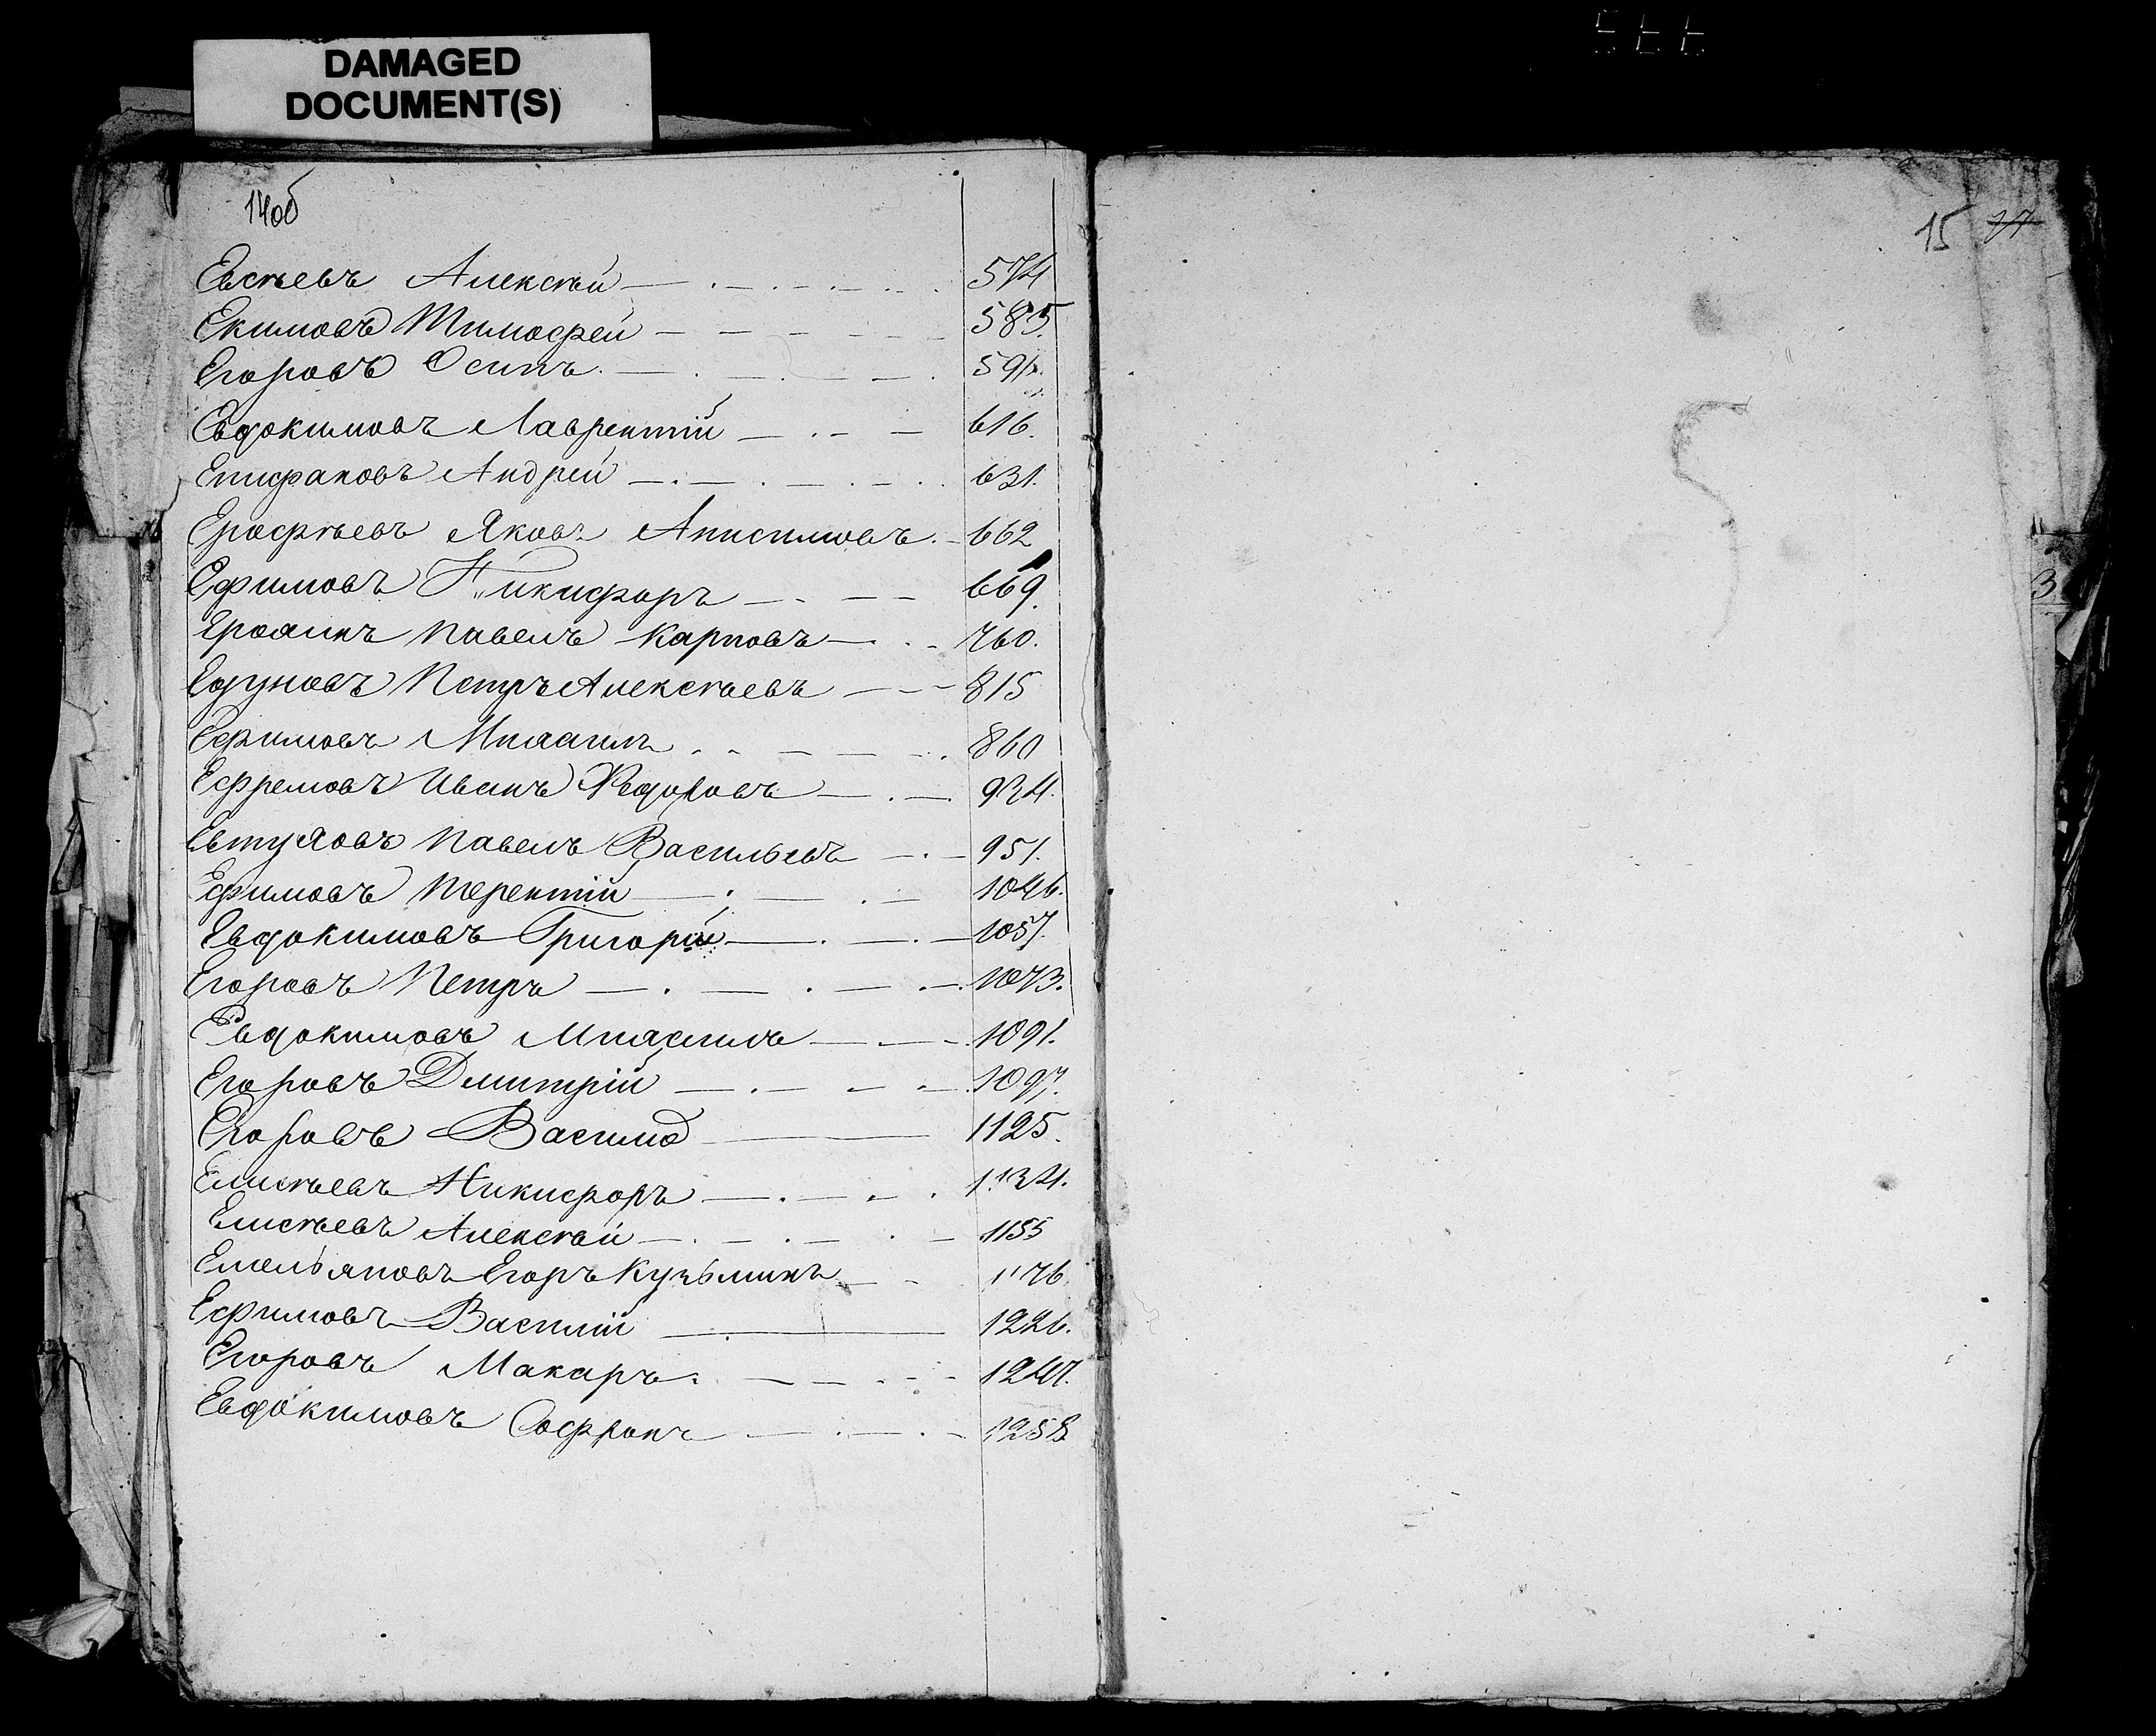 DAMAGED
DOCUMENT(S)
14об
Евсѣевъ Алексѣй 574
Екимовъ Тимофей 585.
Егоровъ Осипъ 591.
Евдокимовъ Лаврентій 616.
Епифановъ Андрей 631.
Ерофѣевъ Яковъ Анисимовъ 662
Ефимовъ Никифоръ 669.
Павелъ Карповъ 760.
Петръ Алексѣевъ 815
Ефимовъ Михаилъ 860
Ефремовъ Иванъ Ѳедоровъ 934.
Павелъ Васильевъ 951.
Ефимовъ Терентій 1046.
Евдокимовъ Григорій 1057.
Егоровъ Петръ 1073.
Евдокимовъ Михаилъ 1091.
Егоровъ Дмитрій 1097.
Егоровъ Василій 1125.
Елисѣевъ Никифоръ 1134.
Елисѣевъ Алексѣй 1155
Емельяновъ Егоръ Кузьминъ 1176
Ефимовъ Василій 1226.
Егоровъ Макаръ 1247.
Евдокимовъ Софронъ 1258
15 17
3